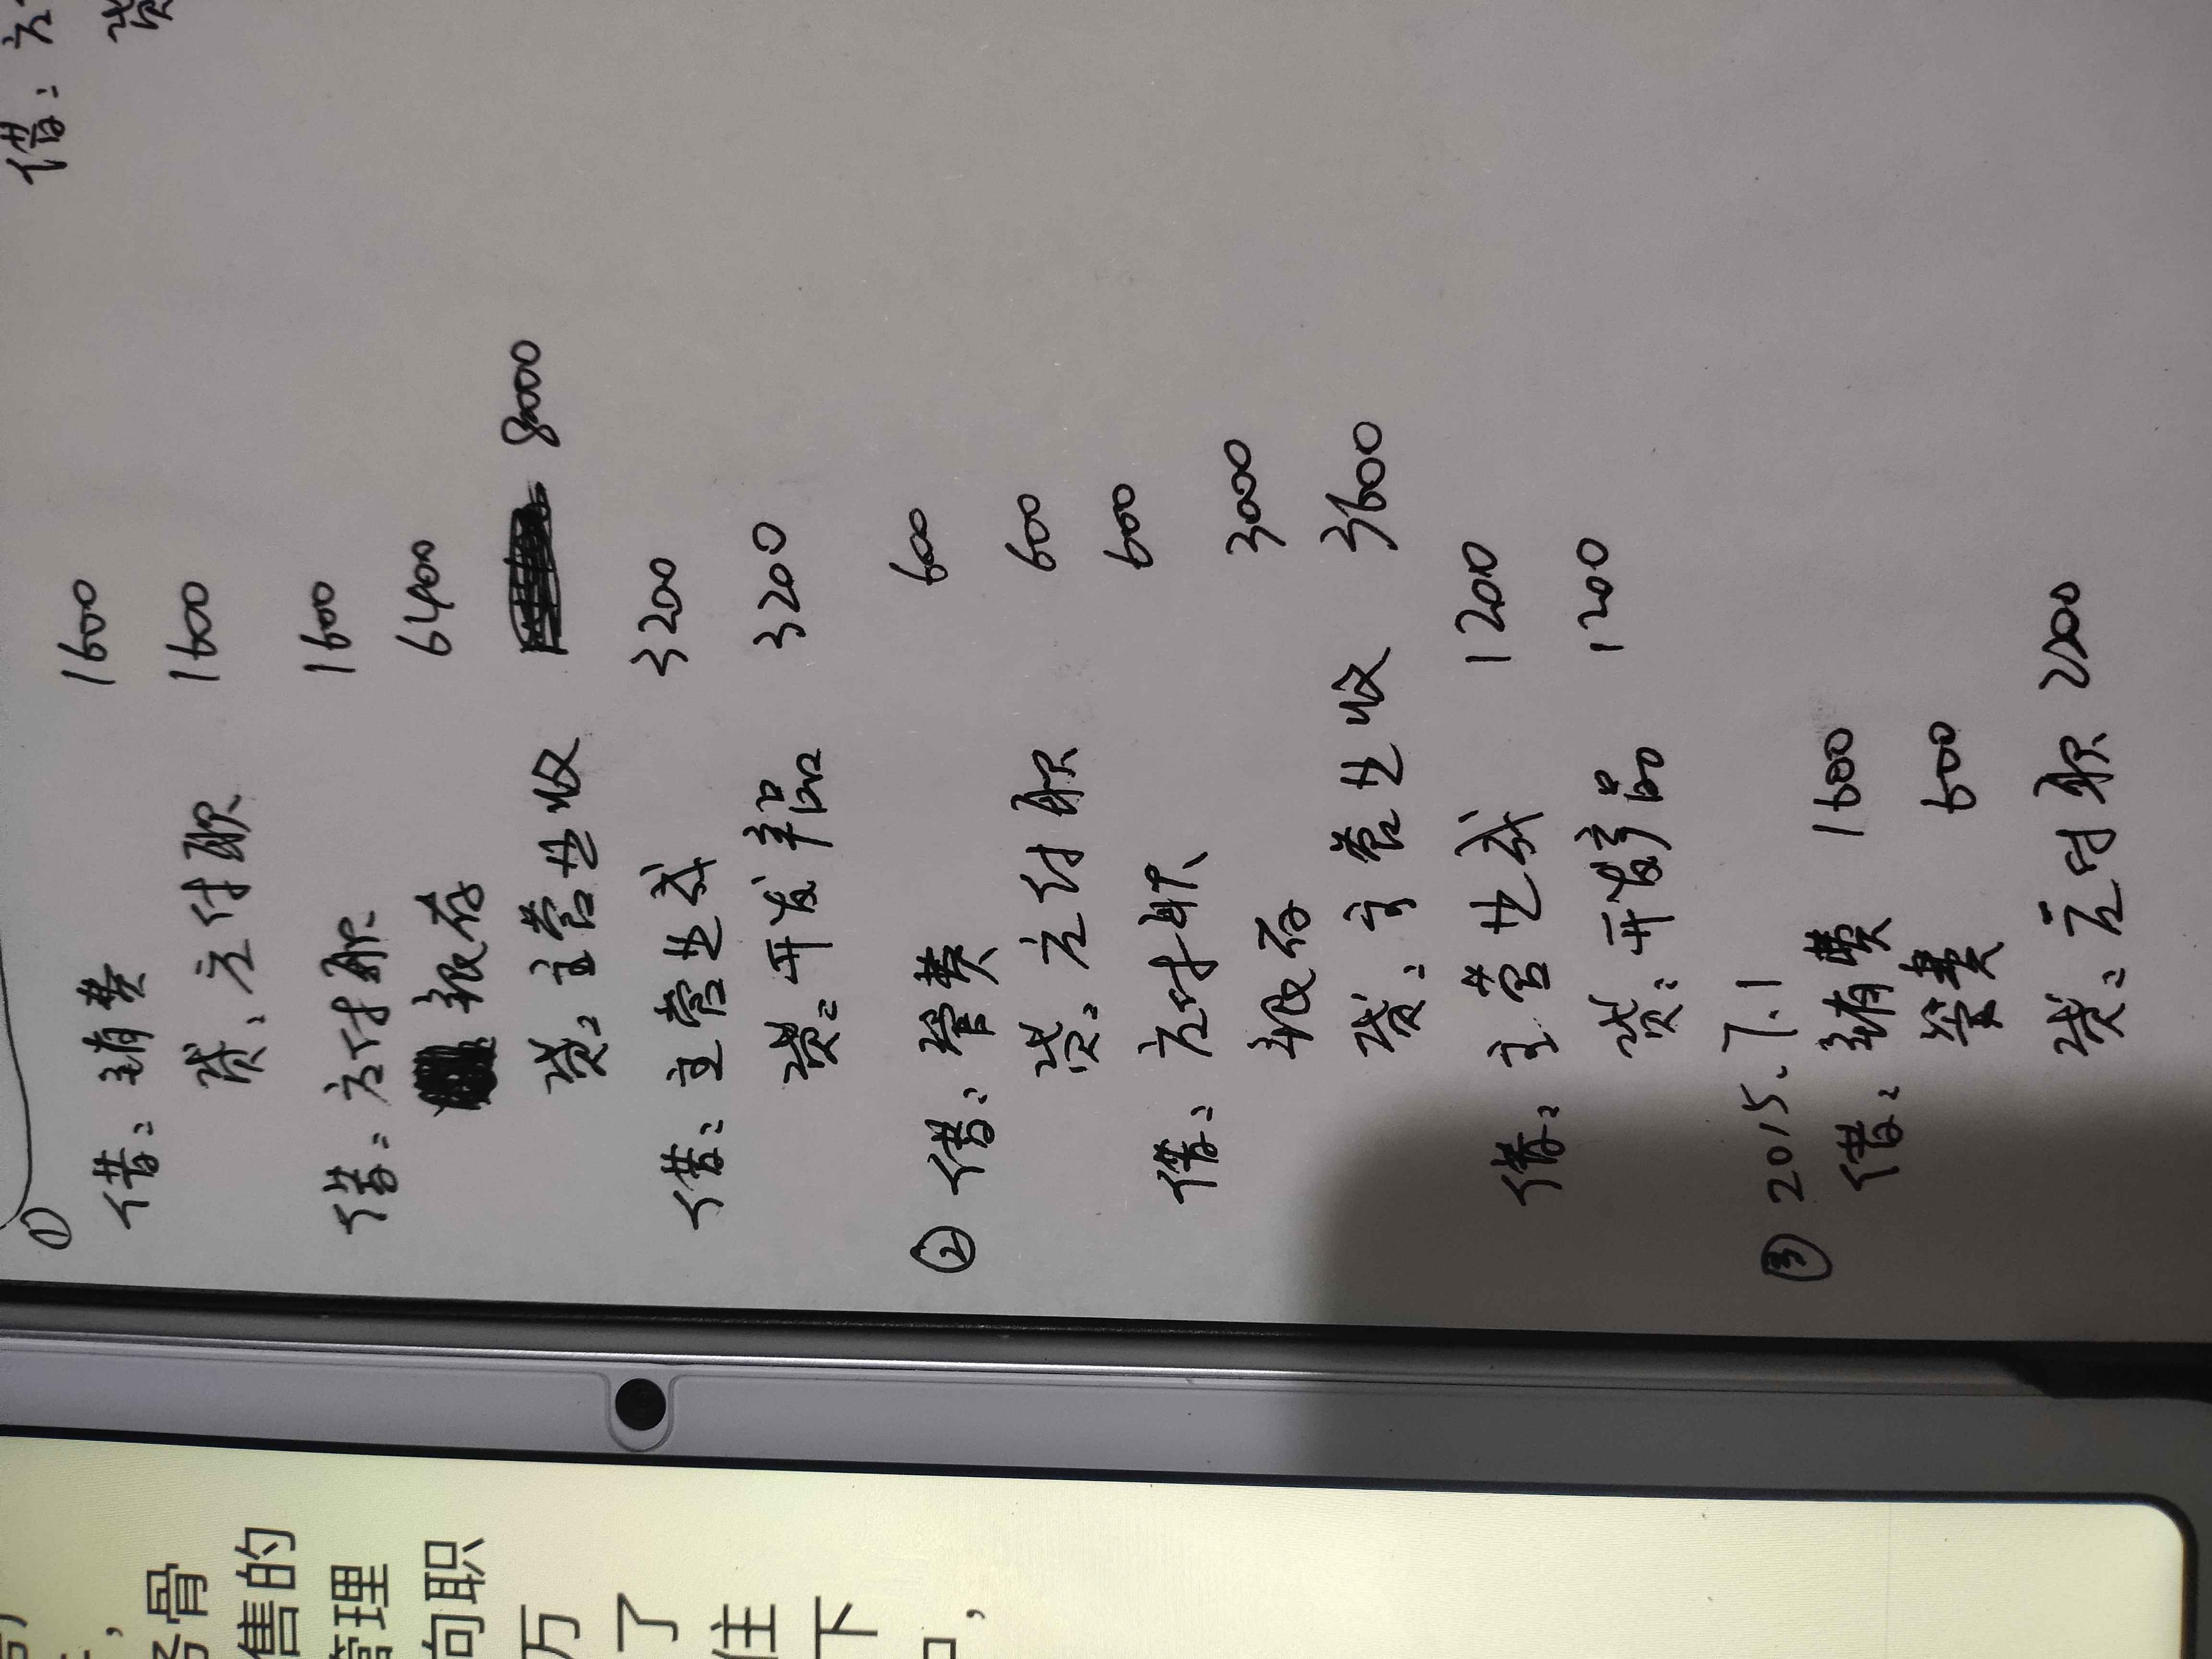 借:
①
借: 销售费 1600
贷: 应付职 1600
借: 应付职 1600
银存 6400
贷: 主营业收 8000
借: 主营业成 3200
贷: 开发产品 3200
② 借: 管费 600
贷: 应付职 600
借: 应付职 600
银存 3000
贷: 主营业收 3600
借: 主营业成 1200
贷: 开发产品 1200
③ 2015.7.1
借: 销售费 1600
管费 600
贷: 应付职 2200
骨
售的
管理
向职
万
了
住
下